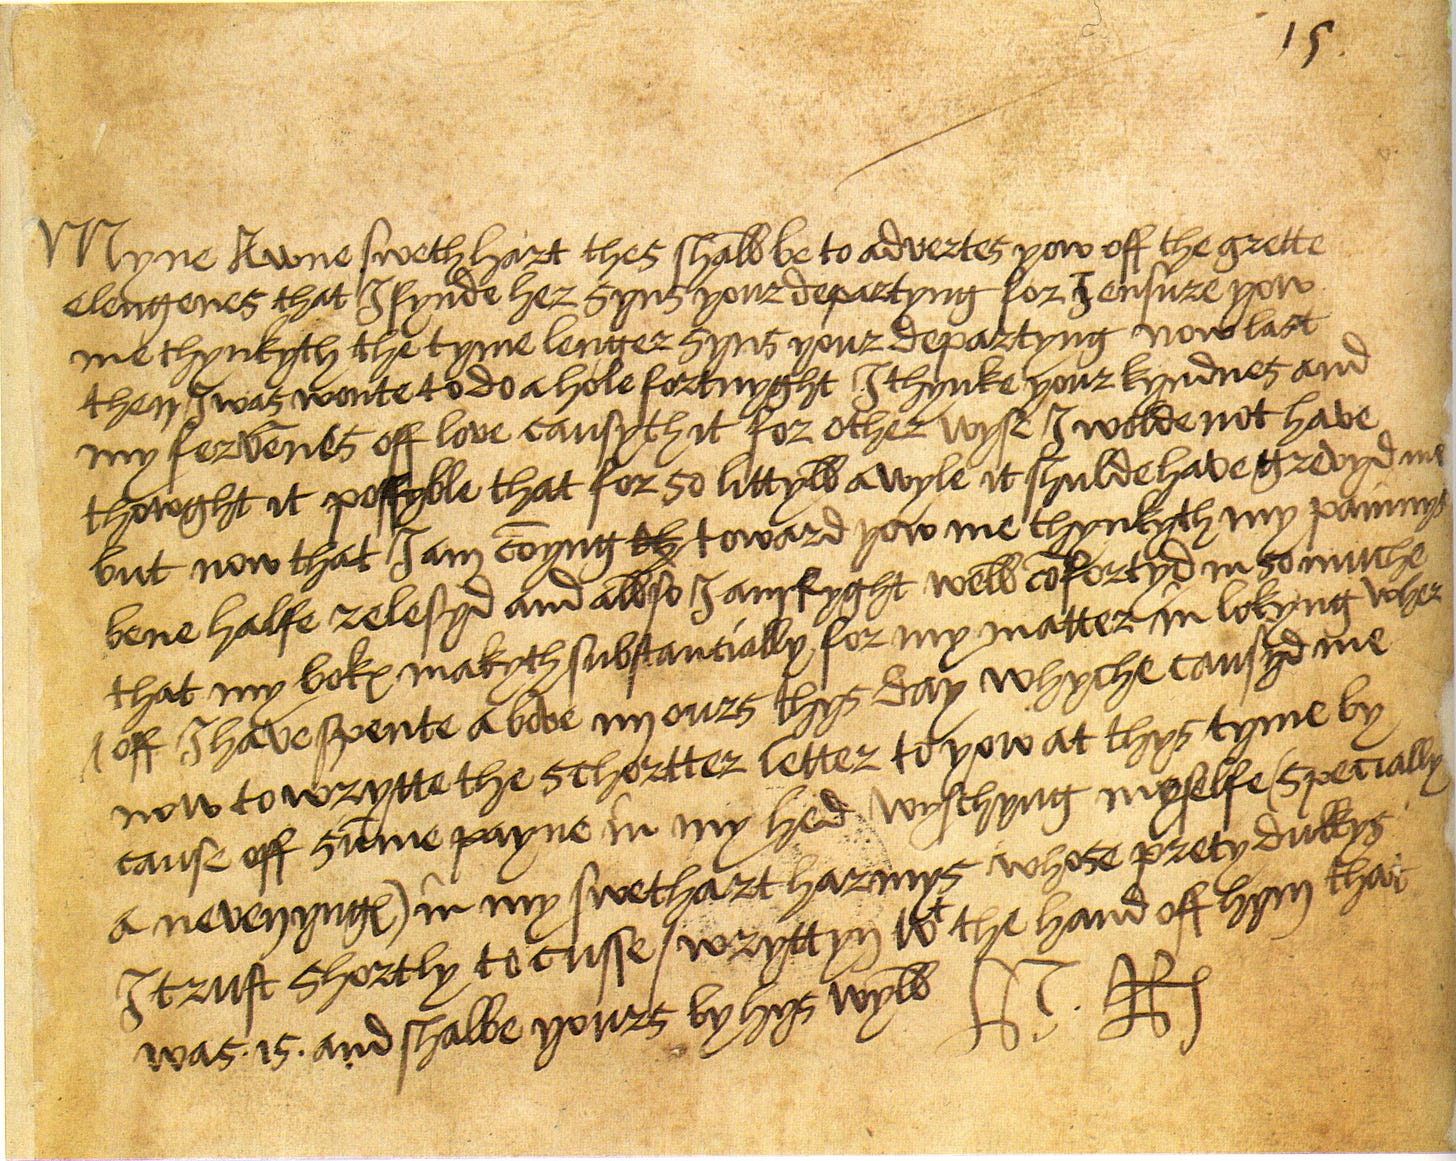 15.
Myne Awne swethhart thes shall be to advertes yow off the grette
elengenes that I fynde her syns your departyng for I ensure yow
me thynkyth the tyme lenger syns your departyng now last
then I was wonte to do a hole fortnyght I thynke your kyndnes and
my fervēnes off love causyth it for other wyse I wolde not have
thowght it possyble that for so littyll a wyle it shulde have grevyd me
but now that I am cōyng toward yow me thynkyth my painnys
bene halfe relesyd and allso I am ryght well cōfortyd in so muche
that my boke makyth substancially for my matter in lokyng wher
off I have spente above iiij ours thys day whyche causyd me
now to wrytte the schortter letter to yow at thys tyme by
cause off sūme payne in my hed wyschyng my selfe (specially
a nevenyng) in my swethart harmys whose prety dukkys
I trust shortly to cusse / wryttyn wt the hand off hym that
was .is. and shalbe yours by hys wyll H. Rx